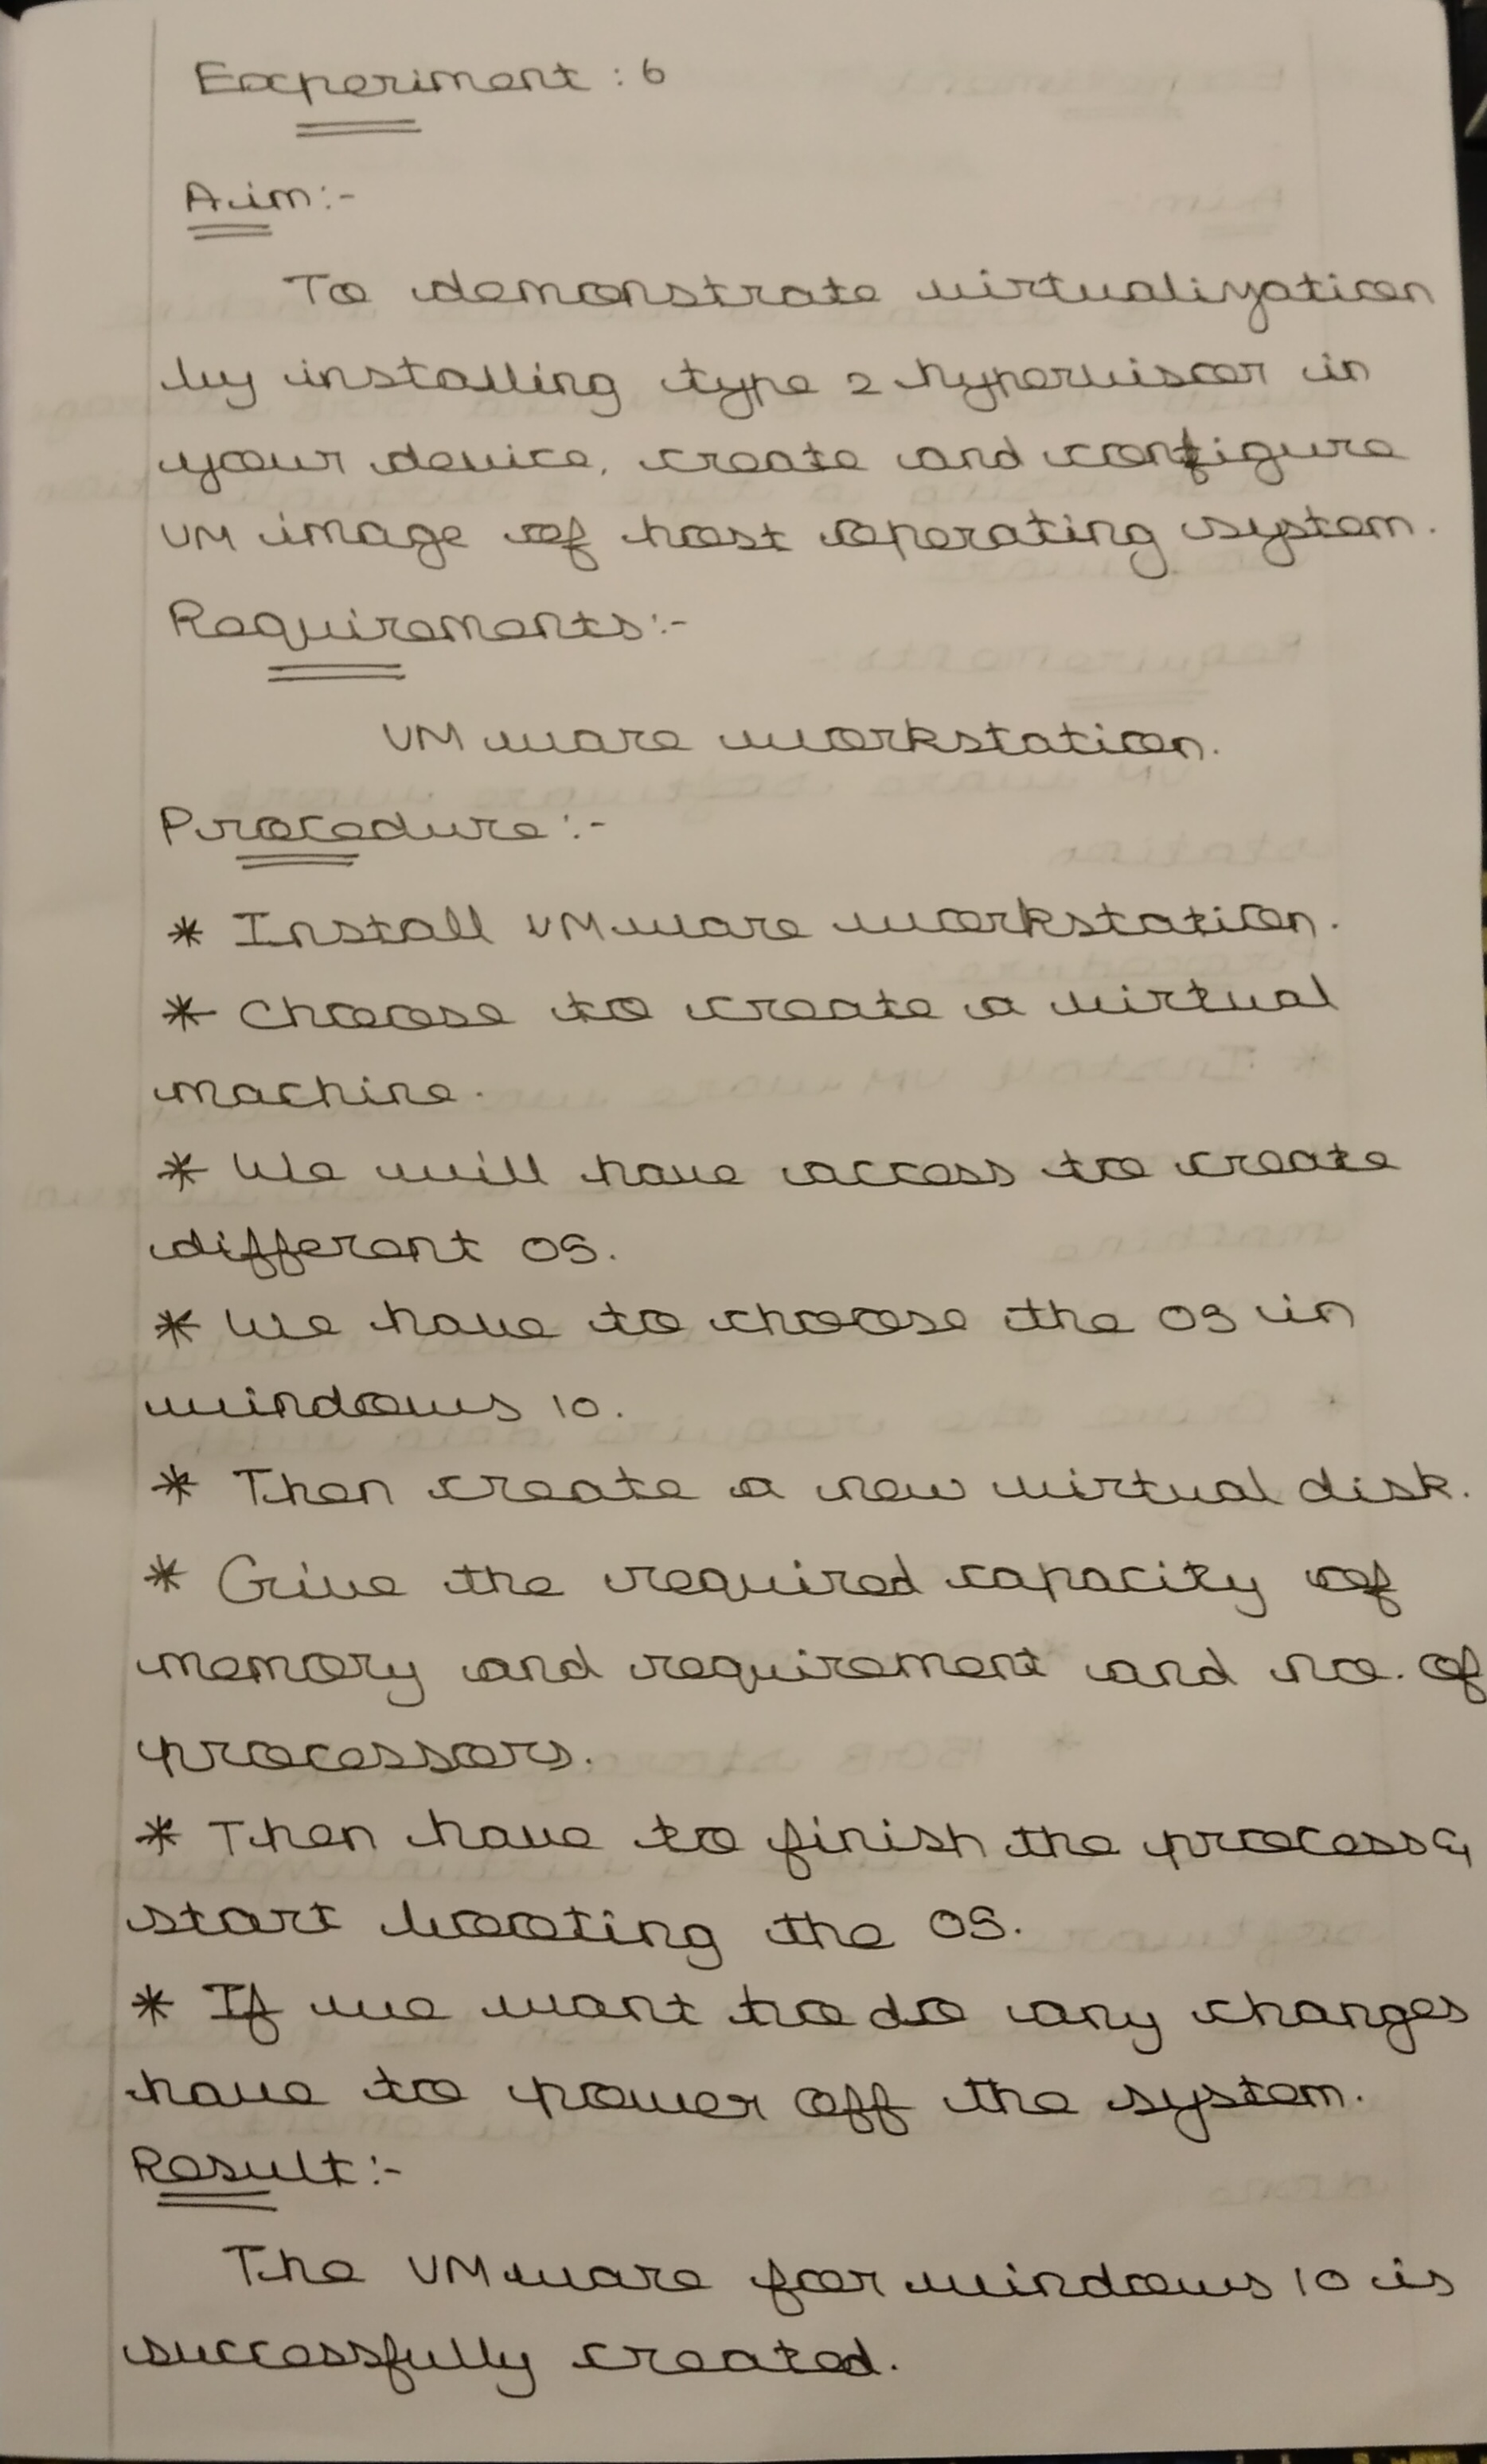 Experiment : 6
Aim:-
To demonstrate virtualization
by installing type 2 hypervisor in
your device, create and configure
VM image of host operating system.
Requirements:-
VM ware workstation.
Procedure:-
* Install VM ware workstation.
* Choose to create a virtual
machine.
* We will have access to create
different OS.
* We have to choose the OS in
windows 10.
* Then create a new virtual disk.
* Give the required capacity of
memory and requirement and no. of
processors.
* Then have to finish the process &
start booting the OS.
* If we want to do any changes
have to power off the system.
Result:-
The VM ware for windows 10 is
successfully created.